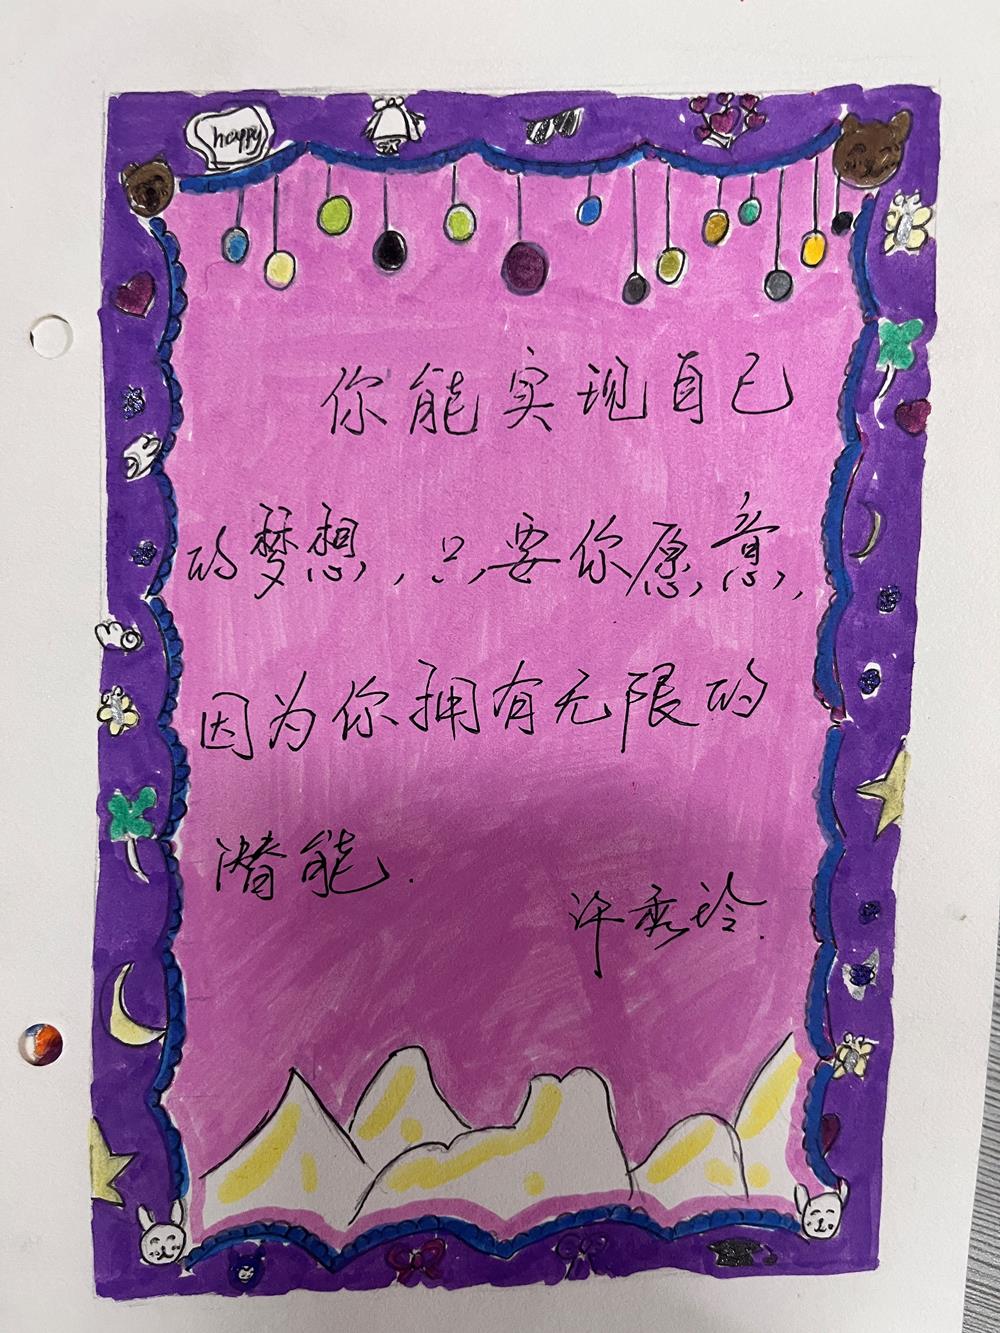 happy
你能实现自己
的梦想，只要你愿意，
因为你拥有无限的
潜能.
许秀玲.